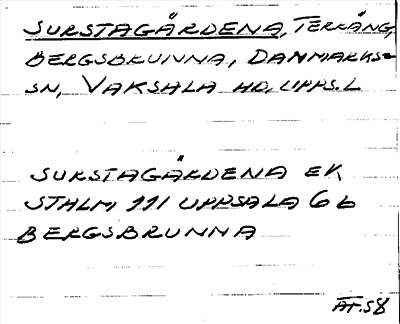 SURSTAGÅRDENA, TERRÄNG,
BERGSBRUNNA, DANMARKS-
SN, VAKSALA HD, UPPS.L
SURSTAGÅRDENA EK
STHLM 111 UPPSALA 6 b
BERGSBRUNNA
ÄT.58